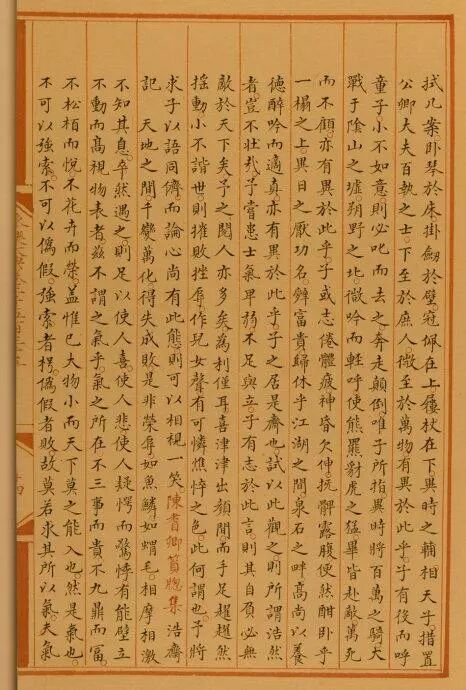 拭几案。卧琴於床。掛劍於壁。冠佩在上。屨杖在下。異時之輔相天子。措置
公卿大夫百執之士。下至於庶人。微至於萬物。有異於此乎。子有後而呼
童子。小不如意。則必叱而去之。奔走顛倒。唯子所指。異時將百萬之騎。大
戰于陰山之墟。朔野之北。微吟而輕呼。使熊羆豺虎之猛。畢皆赴敵。萬死
而不顧。亦有異於此乎。子或志倦體疲。神昏欠伸。抗髒露腹。便然酣卧乎
一榻之上。異日之厭功名。辭富貴。歸休乎江湖之間。泉石之畔。高尚以養
德。醉吟而適真。亦有異於此乎。子之居是齋也。試以此觀之。則所謂浩然
者。豈不壯哉。予嘗患士氣卑弱。不足與立。子有志於此言。則其自負必無
敵於天下矣。予之閱人亦多矣。為利僅耳。喜津津出顏間。而手足趯趯然
揺動。小不諧世。則摧敗挫辱。作兒女聲。有可憐憔悴之色。此何謂也。予將
求子以語同儕。而論心尚有此態。則可以相視一笑。陳耆卿篔牕集 浩齋
記 天地之間。千變萬化。得失成敗。是非榮辱。如魚鱗。如蝟毛。相摩相激。
不知其息。卒然遇之。則足以使人喜。使人悲。使人疑愕而驚悸。有能壁立
不動。而高視物表者。茲不謂之氣乎。氣之所在。不三事而貴。不九鼎而富。
不松栢而悅。不花卉而榮。蓋惟已大物小。而天下莫之能入也。然是氣也。
不可以強索。不可以偽假。強索者枵。偽假者敗。故莫若求其所以氣。夫氣